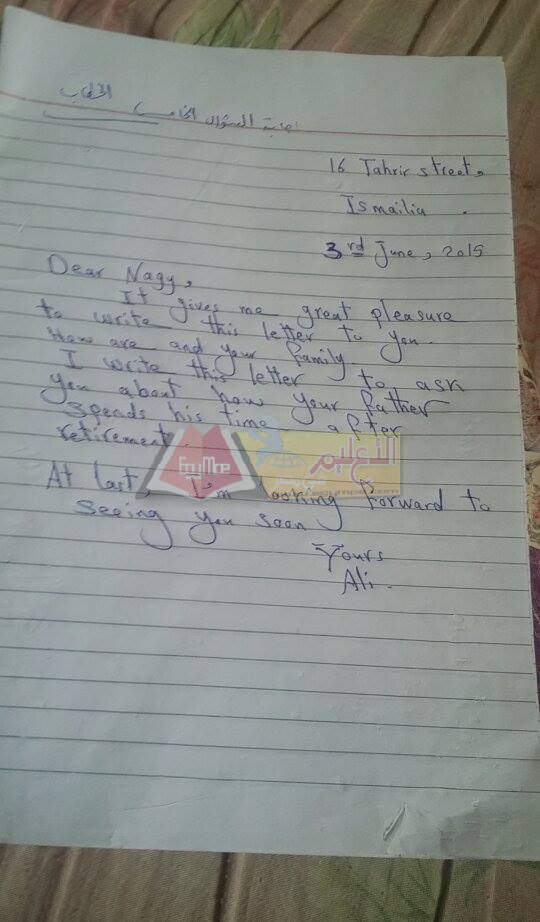 اجابة السؤال الخامس الخطاب
16 Tahric street,
Ismailia .
3rd June, 2015
Dear Nagy,
It gives me great pleasure
to write this letter to you.
How are and your family.
I write this letter to ask
you about how your father
spends his time after
retirement.
التعليم
At last, I'm looking forward to
seeing you soon
Yours
Ali.